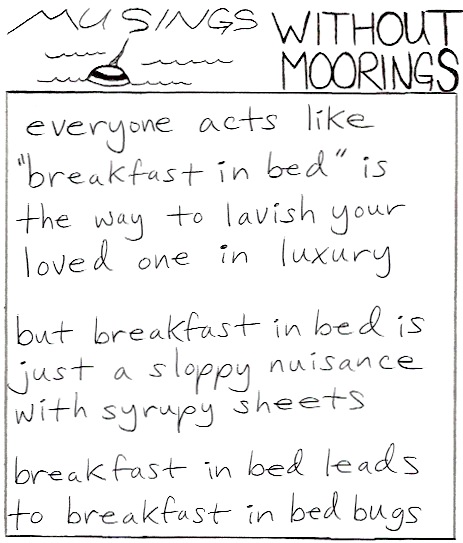 MUSINGS WITHOUT
MOORINGS
everyone acts like
"breakfast in bed" is
the way to lavish your
loved one in luxury
but breakfast in bed is
just a sloppy nuisance
with syrupy sheets
breakfast in bed leads
to breakfast in bed bugs